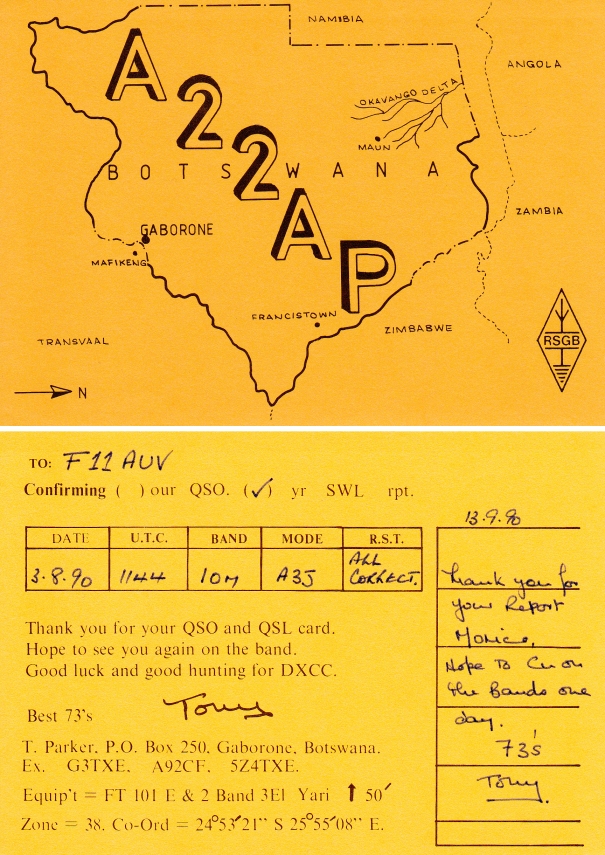 NAMIBIA
ANGOLA
A22AP
OKAVANGO DELTA
MAUN
BOTSWANA
ZAMBIA
GABORONE
MAFIKENG
FRANCISTOWN
ZIMBABWE
TRANSVAAL
RSGB
N
TO: F11 AUV
Confirming ( ) our QSO. (✓) yr SWL rpt.
DATE U.T.C. BAND MODE R.S.T.
3.8.90 1144 10M A3J ALL CORRECT.
Thank you for your QSO and QSL card.
Hope to see you again on the band.
Good luck and good hunting for DXCC.
Best 73's Tony
T. Parker, P.O. Box 250, Gaborone, Botswana.
Ex. G3TXE, A92CF, 5Z4TXE.
Equip't = FT 101 E & 2 Band 3E1 Yari ↑ 50′
Zone = 38. Co-Ord = 24°53′21″ S 25°55′08″ E.
13.9.90
Thank you for
your Report
Monica.
Hope to Cu on
the Bands one
day.
73's
Tony